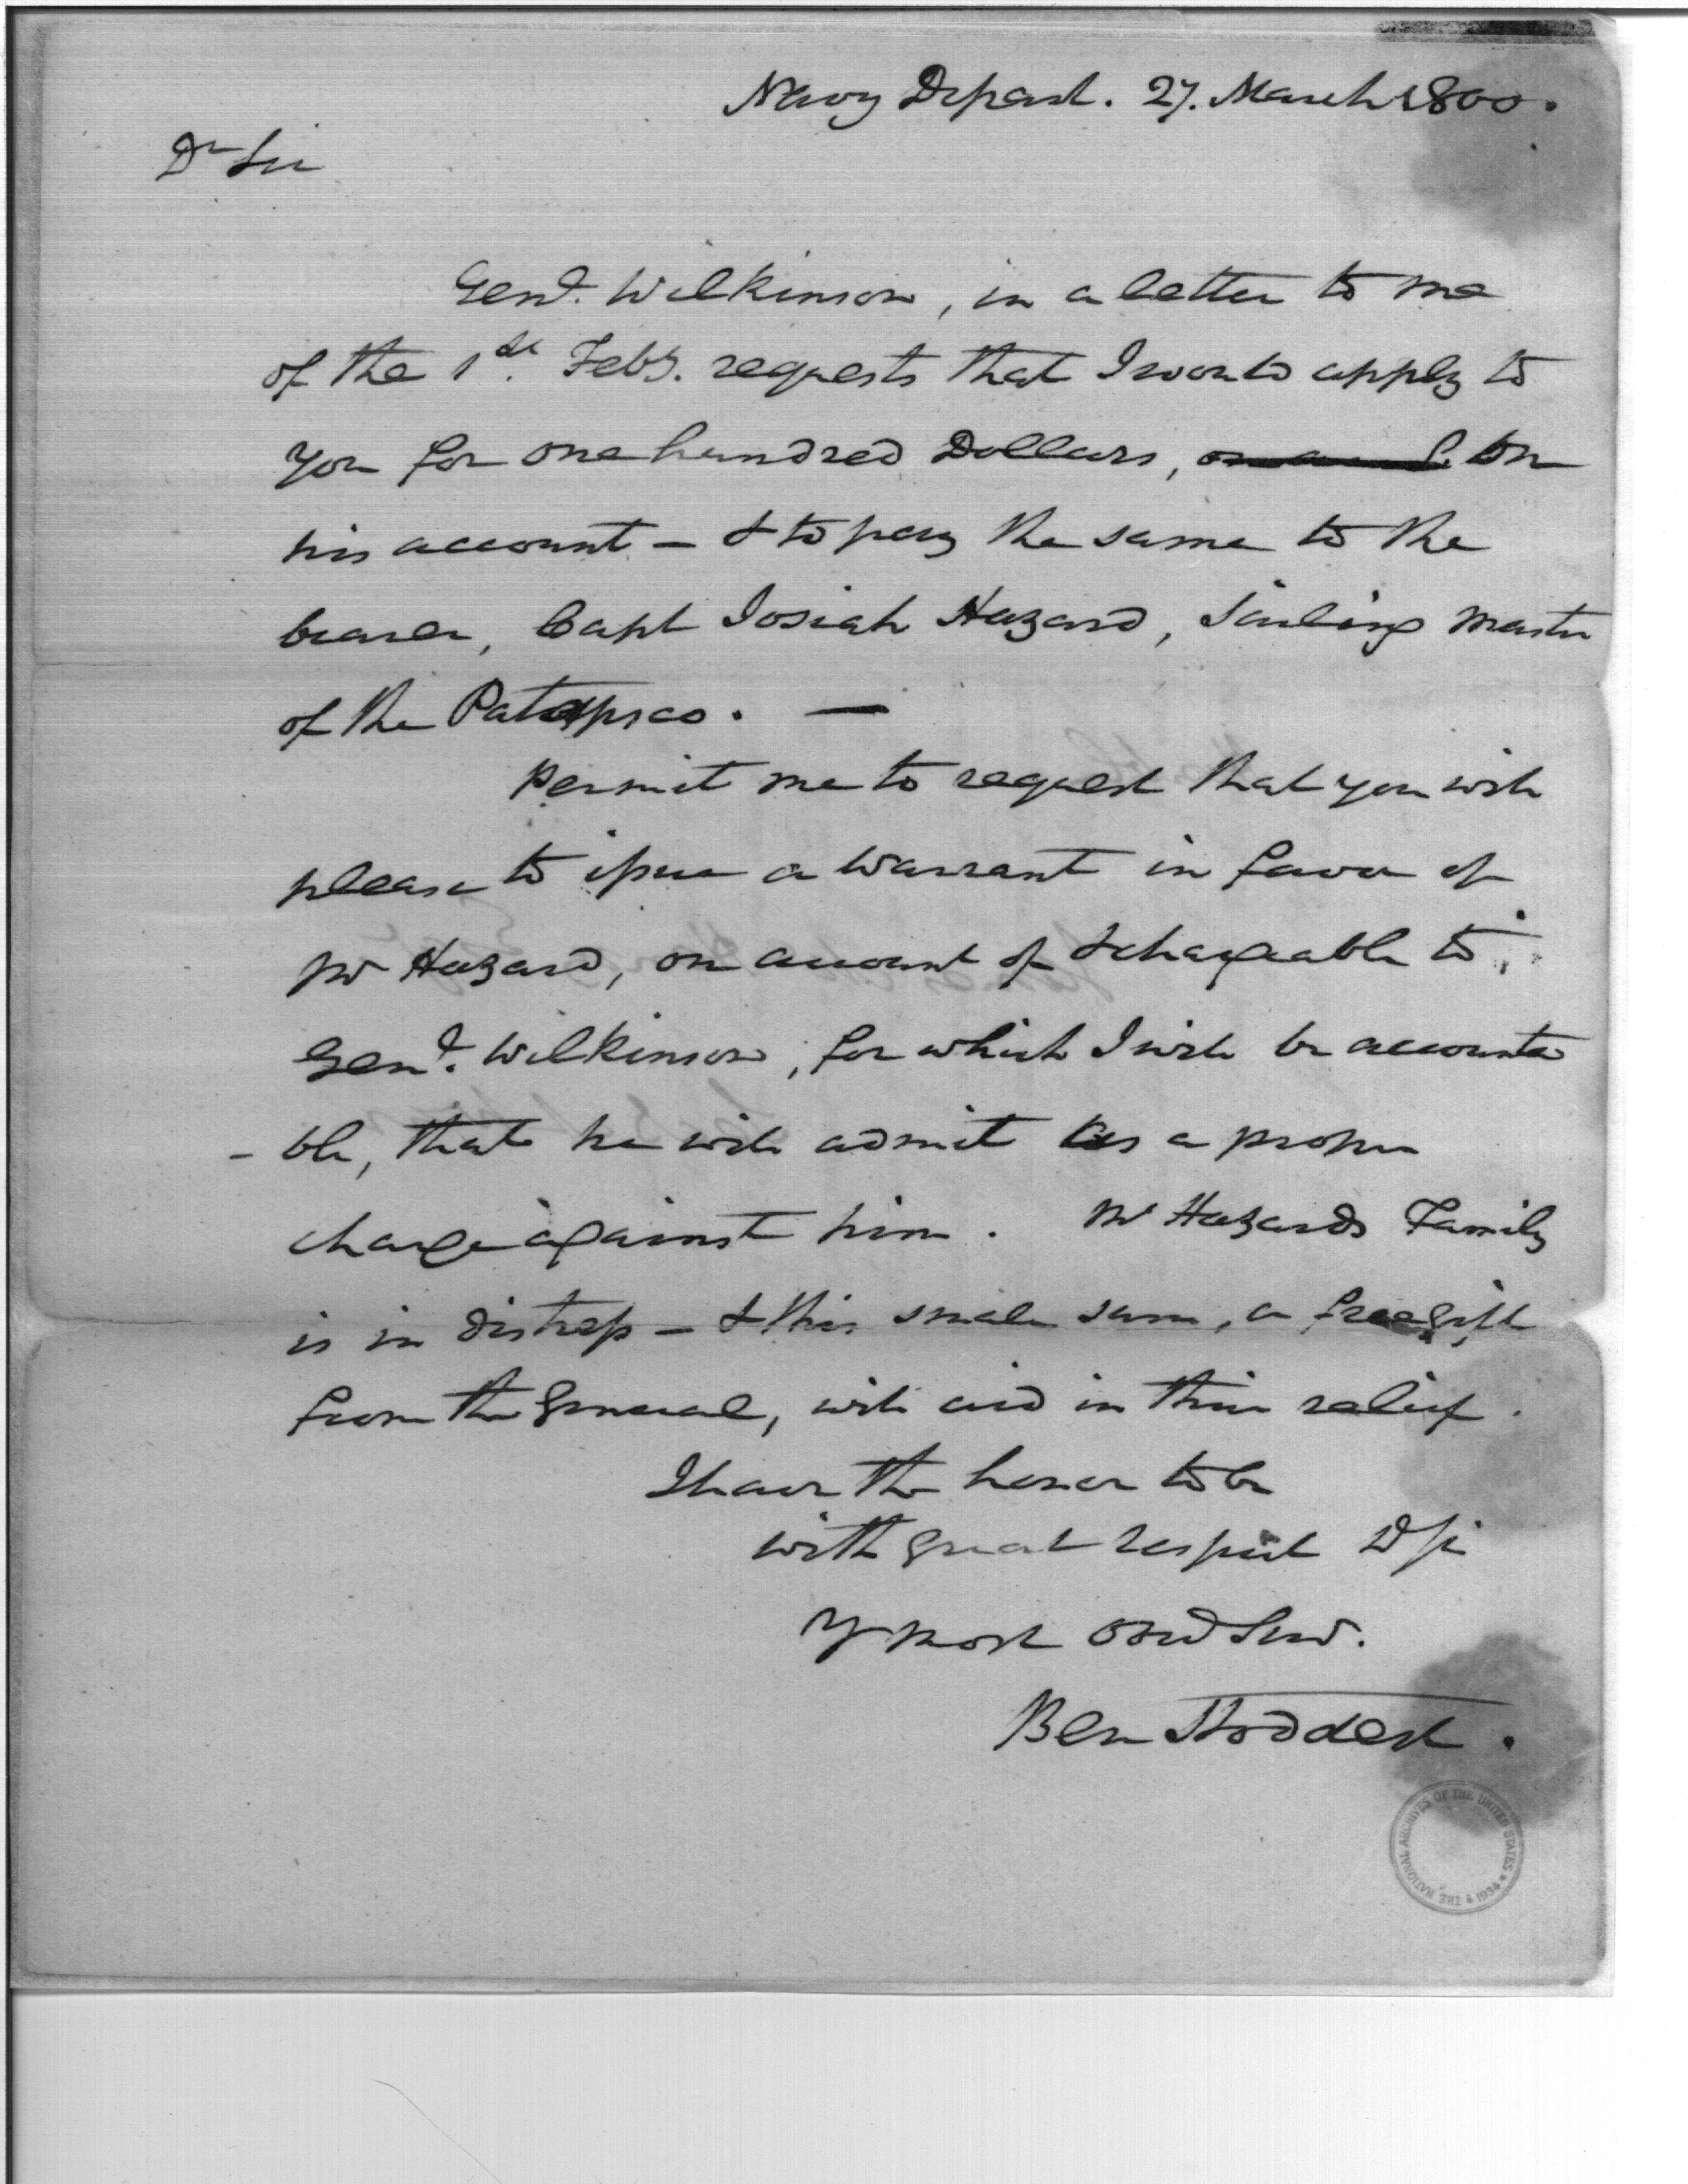 Navy Depart. 27. March 1800.
Dr Sir
Genl. Wilkinson, in a letter to me
of the 1st. Feby. requests that I would apply to
you for one hundred Dollars, on
his account – & to pay the same to the
bearer, Capt Josiah Hazard, Sailing Master
of the Patapsco. —
Permit me to request that you will
please to issue a Warrant in favor of
Mr Hazard, on account of & chargeable to
Genl. Wilkinson, for which I will be accounta
- ble, that he will admit as a proper
charge against him. Mr Hazards Family
is in distress – & this small sum, a free gift
from the General, will aid in their relief.
I have the honor to be
with great respect D Sir
Yr most Obed Serv.
Ben Stoddert.
THE NATIONAL ARCHIVES OF THE UNITED STATES * 1934 *